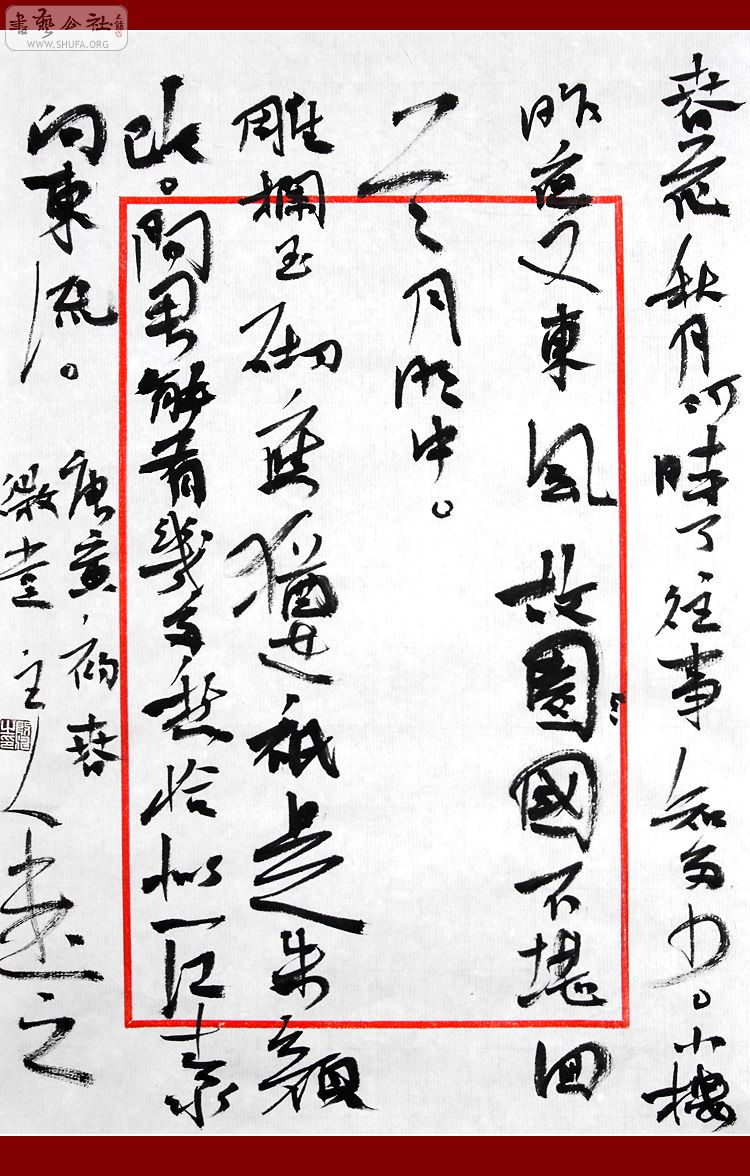 書藝公社
WWW.SHUFA.ORG
春花秋月何時了往事知多少。小樓
昨夜又東風故園國不堪回
首月明中。
雕欄玉砌應猶在祇是朱顏
改。問君能有幾多愁恰似一江春水
向東流。
庚寅初春
堂主人書之